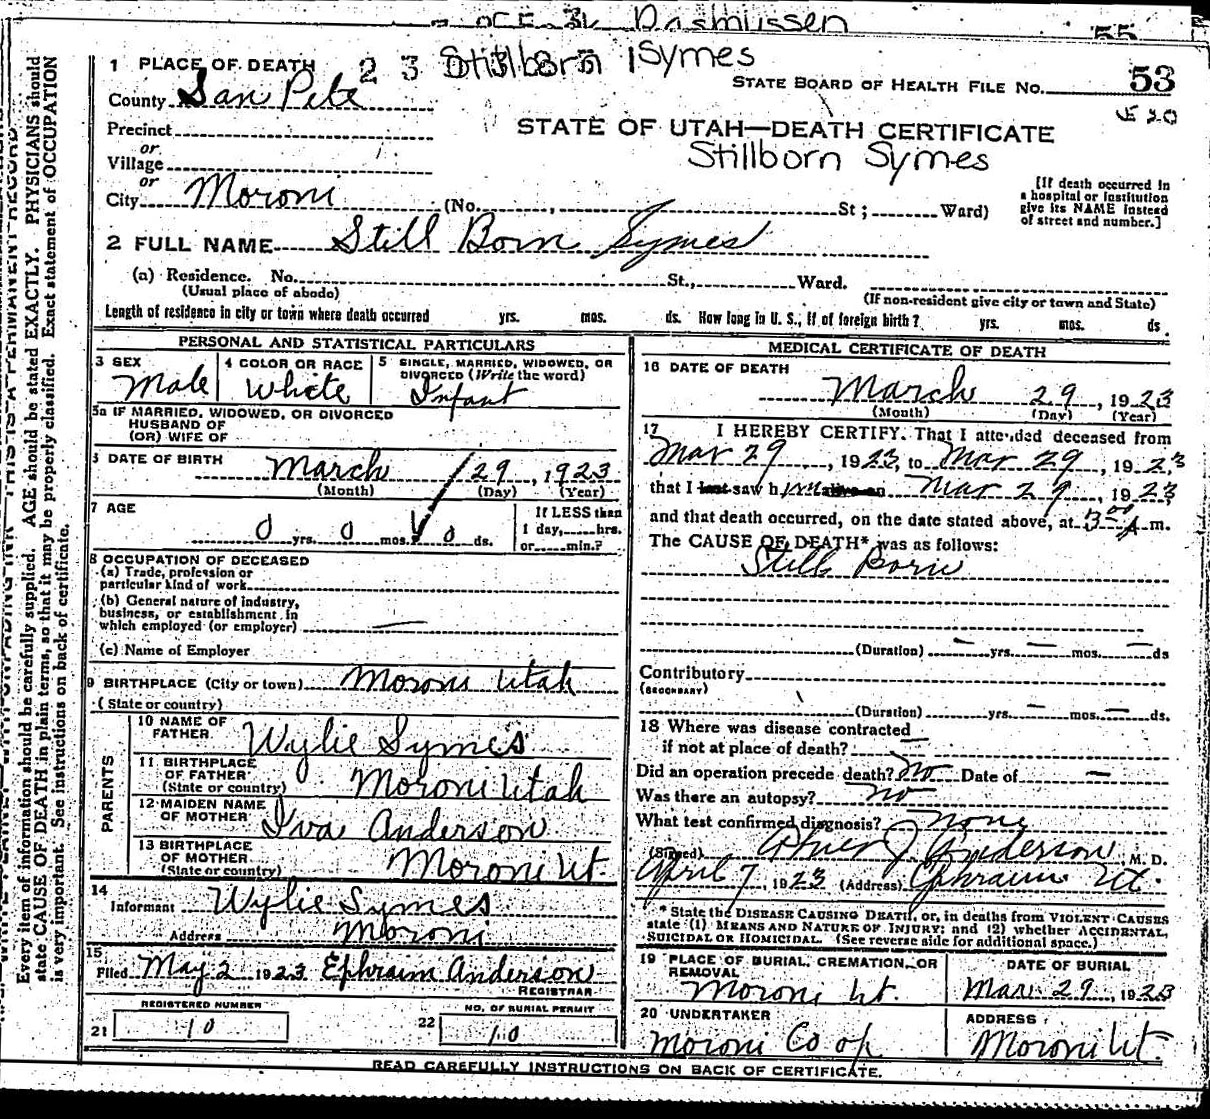 Rasmussen
Stillborn Symes
1 PLACE OF DEATH 2 3
STATE BOARD OF HEALTH FILE NO. 53
County San Pete
Precinct
STATE OF UTAH—DEATH CERTIFICATE
or
Village
Stillborn Symes
or
City Moroni (No. , St ; Ward)
[If death occurred in
a hospital or institution
give its NAME instead
of street and number.]
2 FULL NAME Still Born Symes
(a) Residence. No. St., Ward.
(Usual place of abode)
(If non-resident give city or town and State)
Length of residence in city or town where death occurred yrs. mos. ds. How long in U. S., if of foreign birth? yrs. mos. ds.
PERSONAL AND STATISTICAL PARTICULARS
3 SEX Male
4 COLOR OR RACE White
5 SINGLE, MARRIED, WIDOWED, OR
DIVORCED (Write the word)
Infant
5a IF MARRIED, WIDOWED, OR DIVORCED
HUSBAND OF
(OR) WIFE OF
DATE OF BIRTH March 29, 1923
(Month) (Day) (Year)
7 AGE
0 yrs. 0 mos. 0 ds.
If LESS than
1 day, hrs.
or min.?
8 OCCUPATION OF DECEASED
(a) Trade, profession or
particular kind of work
(b) General nature of industry,
business, or establishment in
which employed (or employer) —
(c) Name of Employer
9 BIRTHPLACE (City or town) Moroni Utah
(State or country)
PARENTS
10 NAME OF
FATHER Wylie Symes
11 BIRTHPLACE
OF FATHER
(State or country) Moroni Utah
12 MAIDEN NAME
OF MOTHER Iva Anderson
13 BIRTHPLACE
OF MOTHER
(State or country) Moroni Ut.
14
Informant Wylie Symes
Address Moroni
15
Filed May 2 1923 Ephraim Anderson
REGISTRAR
REGISTERED NUMBER
21 10
NO. OF BURIAL PERMIT
22 10
MEDICAL CERTIFICATE OF DEATH
16 DATE OF DEATH
March 29, 1923
(Month) (Day) (Year)
17 I HEREBY CERTIFY. That I attended deceased from
Mar 29, 1923, to Mar 29, 1923
that I last saw him alive on Mar 29, 1923,
and that death occurred, on the date stated above, at 3 00 A m.
The CAUSE OF DEATH* was as follows:
Still Born
(Duration) — yrs. — mos. — ds
Contributory
(SECONDARY)
(Duration) yrs. — mos. — ds.
18 Where was disease contracted
if not at place of death? —
Did an operation precede death? No Date of —
Was there an autopsy? no
What test confirmed diagnosis? none
(Signed) J Anderson, M. D.
April 7, 1923 (Address) Ephraim Ut.
* State the DISEASE CAUSING DEATH, or, in deaths from VIOLENT CAUSES
state (1) MEANS AND NATURE OF INJURY; and (2) whether ACCIDENTAL,
SUICIDAL OR HOMICIDAL. (See reverse side for additional space.)
19 PLACE OF BURIAL, CREMATION, OR
REMOVAL
Moroni Ut.
DATE OF BURIAL
Mar. 29, 1923
20 UNDERTAKER
Moroni Co op
ADDRESS
Moroni Ut.
READ CAREFULLY INSTRUCTIONS ON BACK OF CERTIFICATE.
THIS IS A PERMANENT RECORD
Every item of information should be carefully supplied. AGE should be stated EXACTLY. PHYSICIANS should
state CAUSE OF DEATH in plain terms, so that it may be properly classified. Exact statement of OCCUPATION
is very important. See instructions on back of certificate.